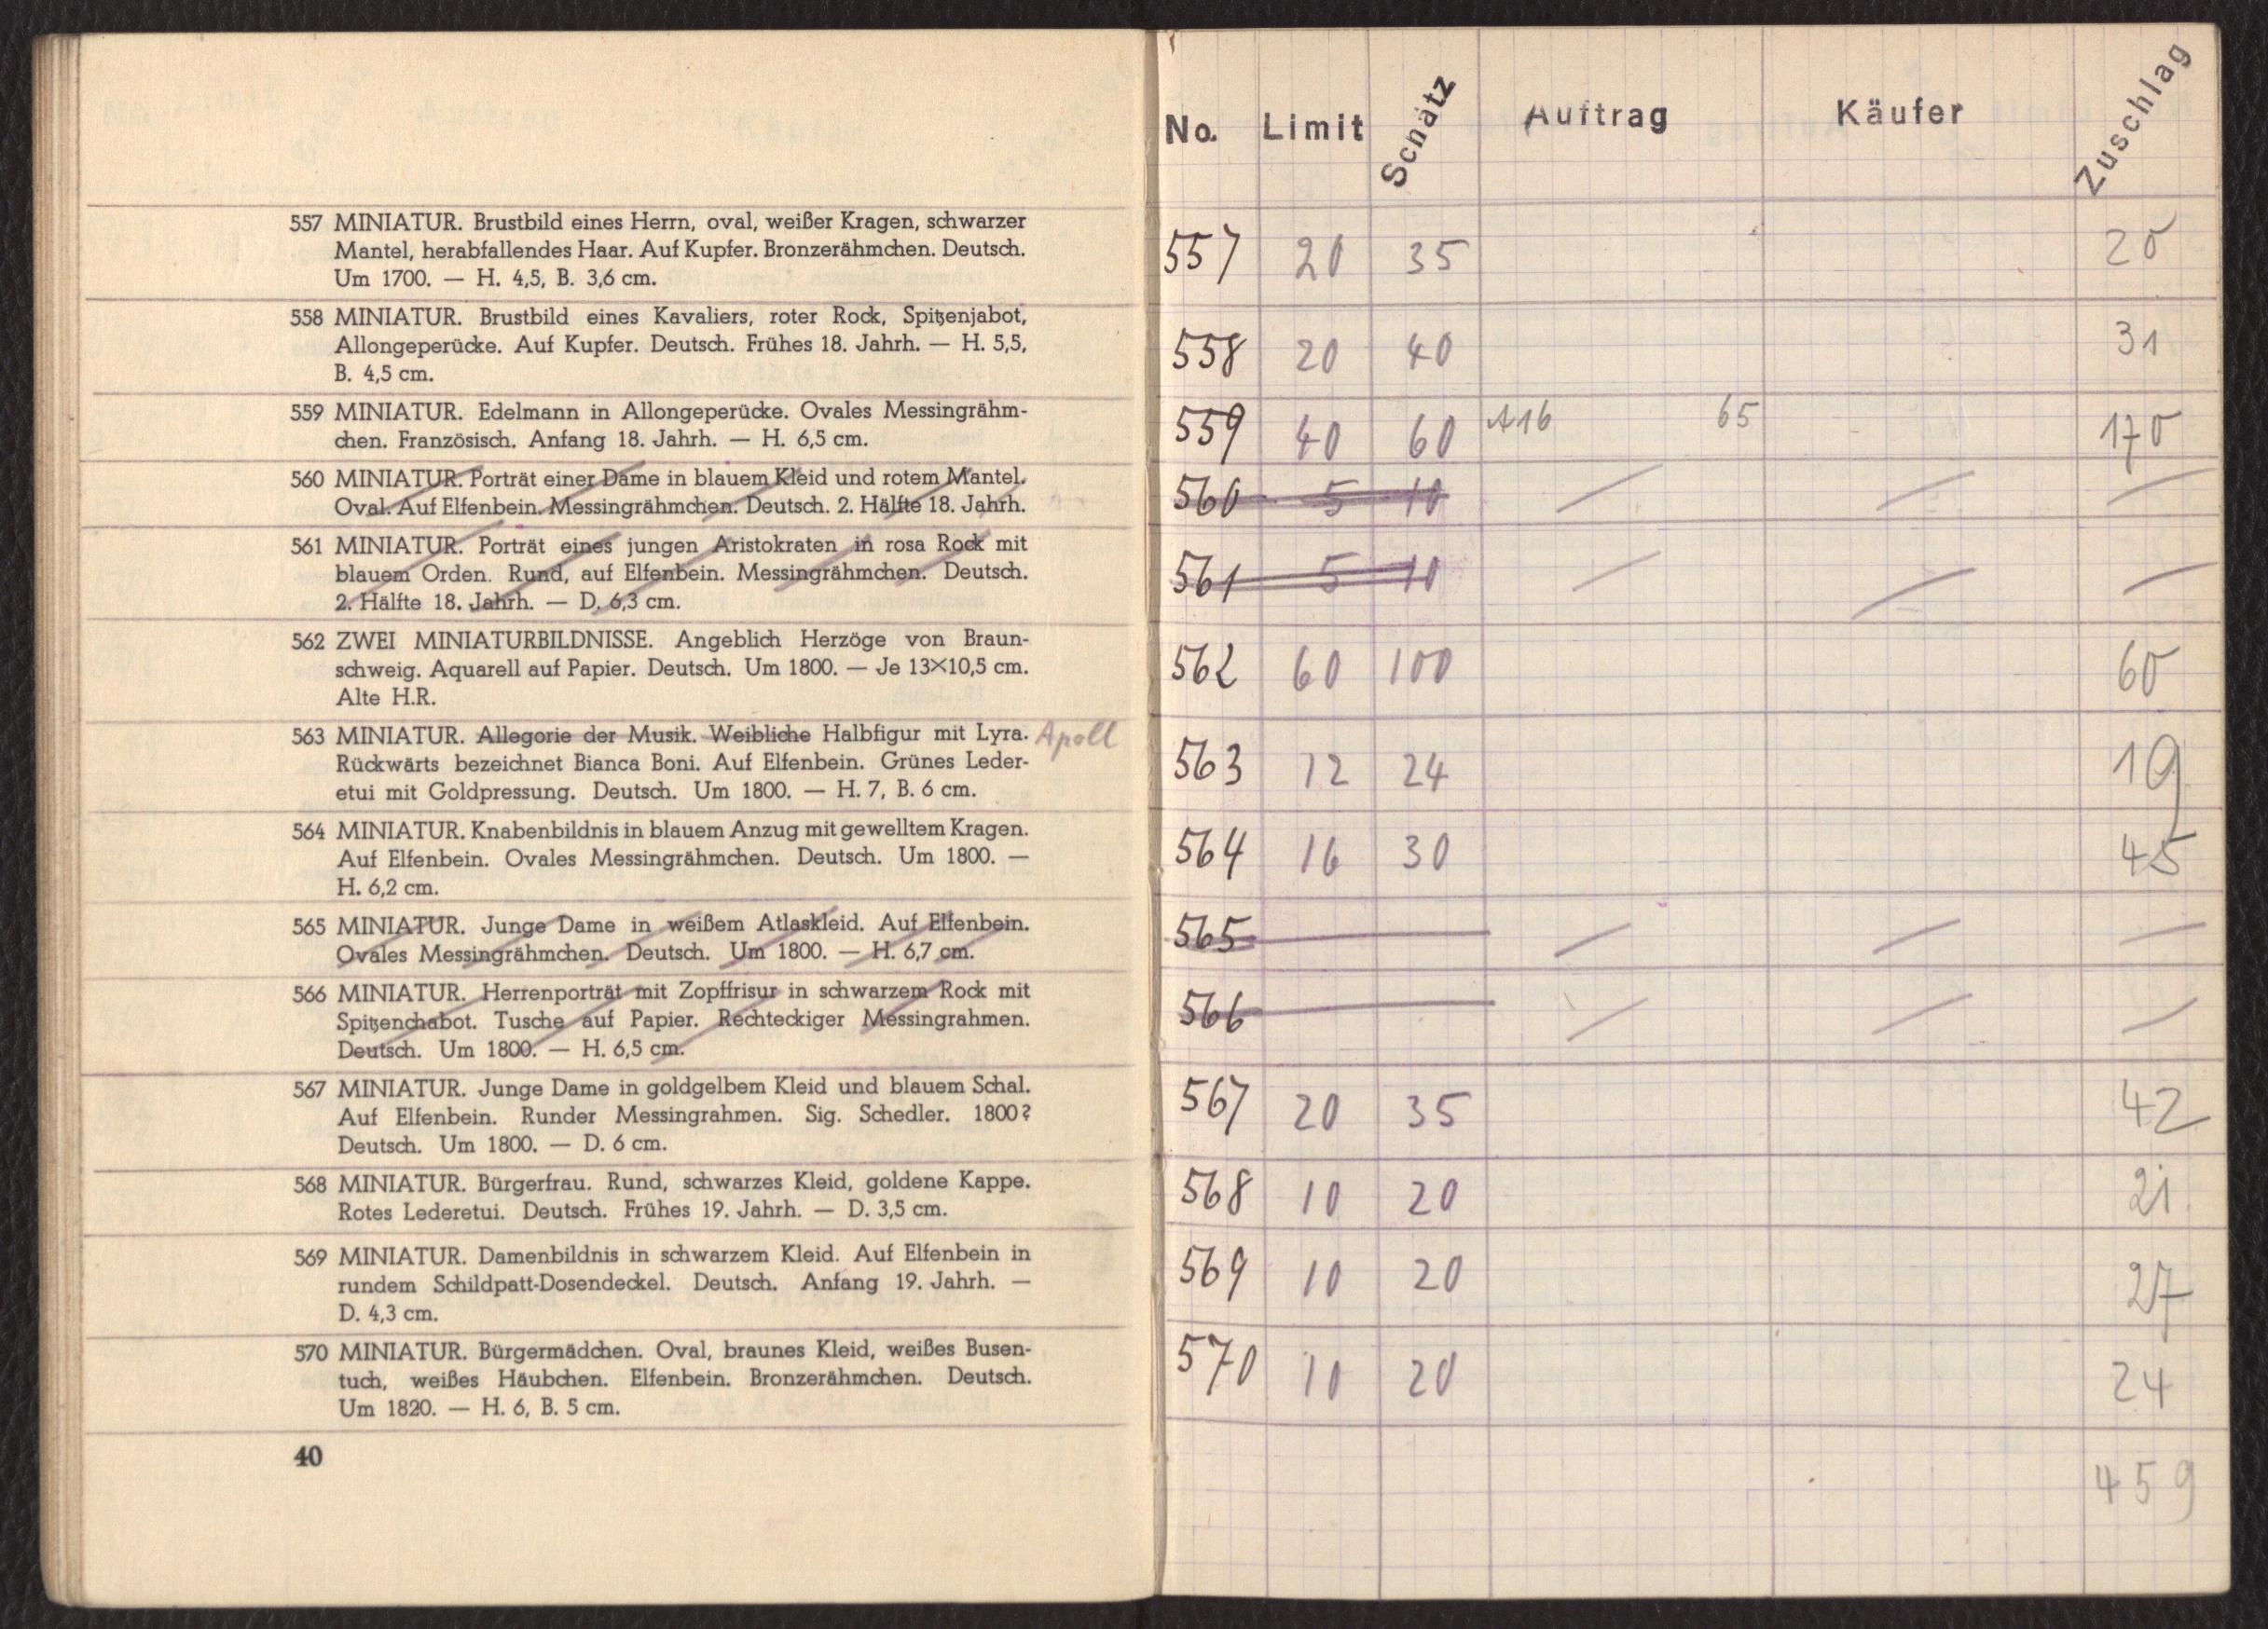 557 MINIATUR. Brustbild eines Herrn, oval, weißer Kragen, schwarzer
Mantel, herabfallendes Haar. Auf Kupfer. Bronzerähmchen. Deutsch.
Um 1700. — H. 4,5, B. 3,6 cm.
558 MINIATUR. Brustbild eines Kavaliers, roter Rock, Spitzenjabot,
Allongeperücke. Auf Kupfer. Deutsch. Frühes 18. Jahrh. — H. 5,5,
B. 4,5 cm.
559 MINIATUR. Edelmann in Allongeperücke. Ovales Messingrähm-
chen. Französisch. Anfang 18. Jahrh. — H. 6,5 cm.
560 MINIATUR. Porträt einer Dame in blauem Kleid und rotem Mantel.
Oval. Auf Elfenbein. Messingrähmchen. Deutsch. 2. Hälfte 18. Jahrh.
561 MINIATUR. Porträt eines jungen Aristokraten in rosa Rock mit
blauem Orden. Rund, auf Elfenbein. Messingrähmchen. Deutsch.
2. Hälfte 18. Jahrh. — D. 6,3 cm.
562 ZWEI MINIATURBILDNISSE. Angeblich Herzöge von Braun-
schweig. Aquarell auf Papier. Deutsch. Um 1800. — Je 13×10,5 cm.
Alte H.R.
563 MINIATUR. Allegorie der Musik. Weibliche Halbfigur mit Lyra. Apoll
Rückwärts bezeichnet Bianca Boni. Auf Elfenbein. Grünes Leder-
etui mit Goldpressung. Deutsch. Um 1800. — H. 7, B. 6 cm.
564 MINIATUR. Knabenbildnis in blauem Anzug mit gewelltem Kragen.
Auf Elfenbein. Ovales Messingrähmchen. Deutsch. Um 1800. —
H. 6,2 cm.
565 MINIATUR. Junge Dame in weißem Atlaskleid. Auf Elfenbein.
Ovales Messingrähmchen. Deutsch. Um 1800. — H. 6,7 cm.
566 MINIATUR. Herrenporträt mit Zopffrisur in schwarzem Rock mit
Spitzenchabot. Tusche auf Papier. Rechteckiger Messingrahmen.
Deutsch. Um 1800. — H. 6,5 cm.
567 MINIATUR. Junge Dame in goldgelbem Kleid und blauem Schal.
Auf Elfenbein. Runder Messingrahmen. Sig. Schedler. 1800?
Deutsch. Um 1800. — D. 6 cm.
568 MINIATUR. Bürgerfrau. Rund, schwarzes Kleid, goldene Kappe.
Rotes Lederetui. Deutsch. Frühes 19. Jahrh. — D. 3,5 cm.
569 MINIATUR. Damenbildnis in schwarzem Kleid. Auf Elfenbein in
rundem Schildpatt-Dosendeckel. Deutsch. Anfang 19. Jahrh. —
D. 4,3 cm.
570 MINIATUR. Bürgermädchen. Oval, braunes Kleid, weißes Busen-
tuch, weißes Häubchen. Elfenbein. Bronzerähmchen. Deutsch.
Um 1820. — H. 6, B. 5 cm.
40
No. Limit Schätz Auftrag Käufer Zuschlag
557 20 35 20
558 20 40 31
559 40 60 A16 65 170
560 5 10 / / /
561 5 10 / / /
562 60 100 60
563 12 24 19
564 16 30 45
565 — / / /
566 — / / /
567 20 35 42
568 10 20 21
569 10 20 27
570 10 20 24
459